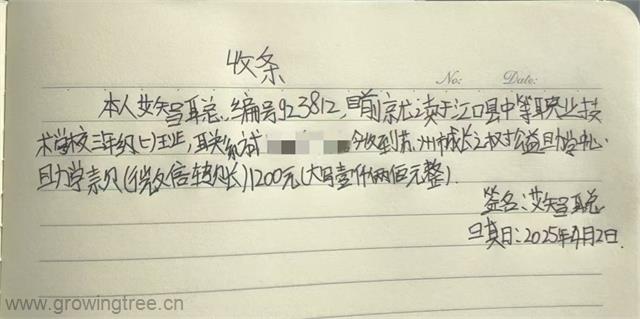 收条
No: Date:
本人艾智聪,编号923812,目前就读于江口县中等职业技
术学校三年级(七)班,联系 今收到苏州市成长之树公益助学中心
助学款(微信转账)1200元(大写壹仟两佰元整).
签名:艾智聪
日期:2025年4月2日.
www.growingtree.cn